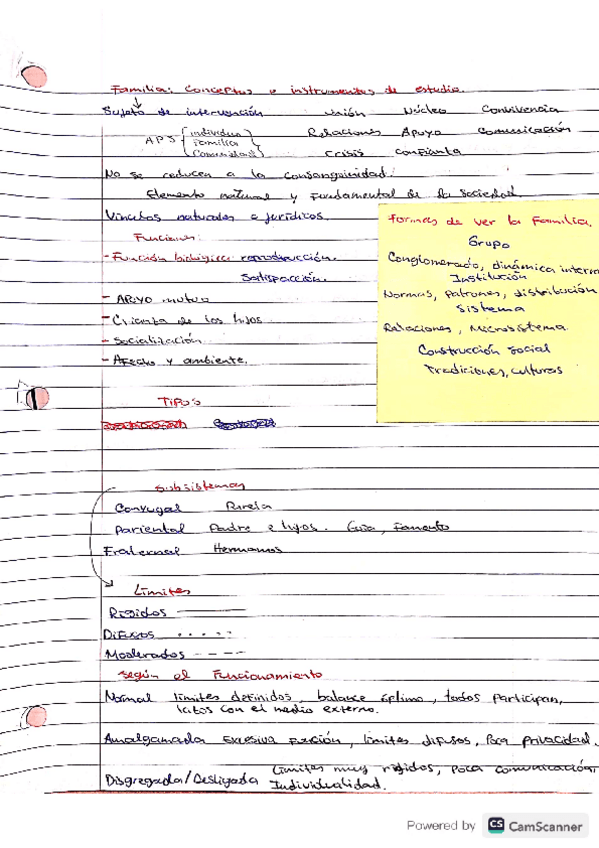 Familia: Conceptos e instrumentos de estudio.
Sujeto de intervención Unión Núcleo Convivencia
APS Individuo Familia Comunidad Relaciones Apoyo Comunicación
Crisis Confianza
No se reducen a la consanguinidad.
Elemento natural y fundamental de la sociedad.
Vínculos naturales o jurídicos.
Funciones:
- Función biológica: reproducción.
Satisfacción.
- Apoyo mutuo
- Crianza de los hijos
- Socialización
- Afecto y ambiente.
Formas de ver la familia.
Grupo
Conglomerado, dinámica interna
Institución
Normas, patrones, distribución
Sistema
Relaciones, Microsistema.
Construcción social
Tradiciones, culturas
Tipos
Subsistemas
Conyugal Pareja
Pariental Padre e hijos. Guía, Fomento
Fraternal Hermanos
Límites
Rígidos
Difusos
Moderados
Según el Funcionamiento
Normal límites definidos, balance óptimo, todos participan,
lazos con el medio externo.
Amalgamada Excesiva fusión, límites difusos, Poca privacidad.
Disgregada/Desligada Límites muy rígidos, poca comunicación
Individualidad.
Powered by CS CamScanner